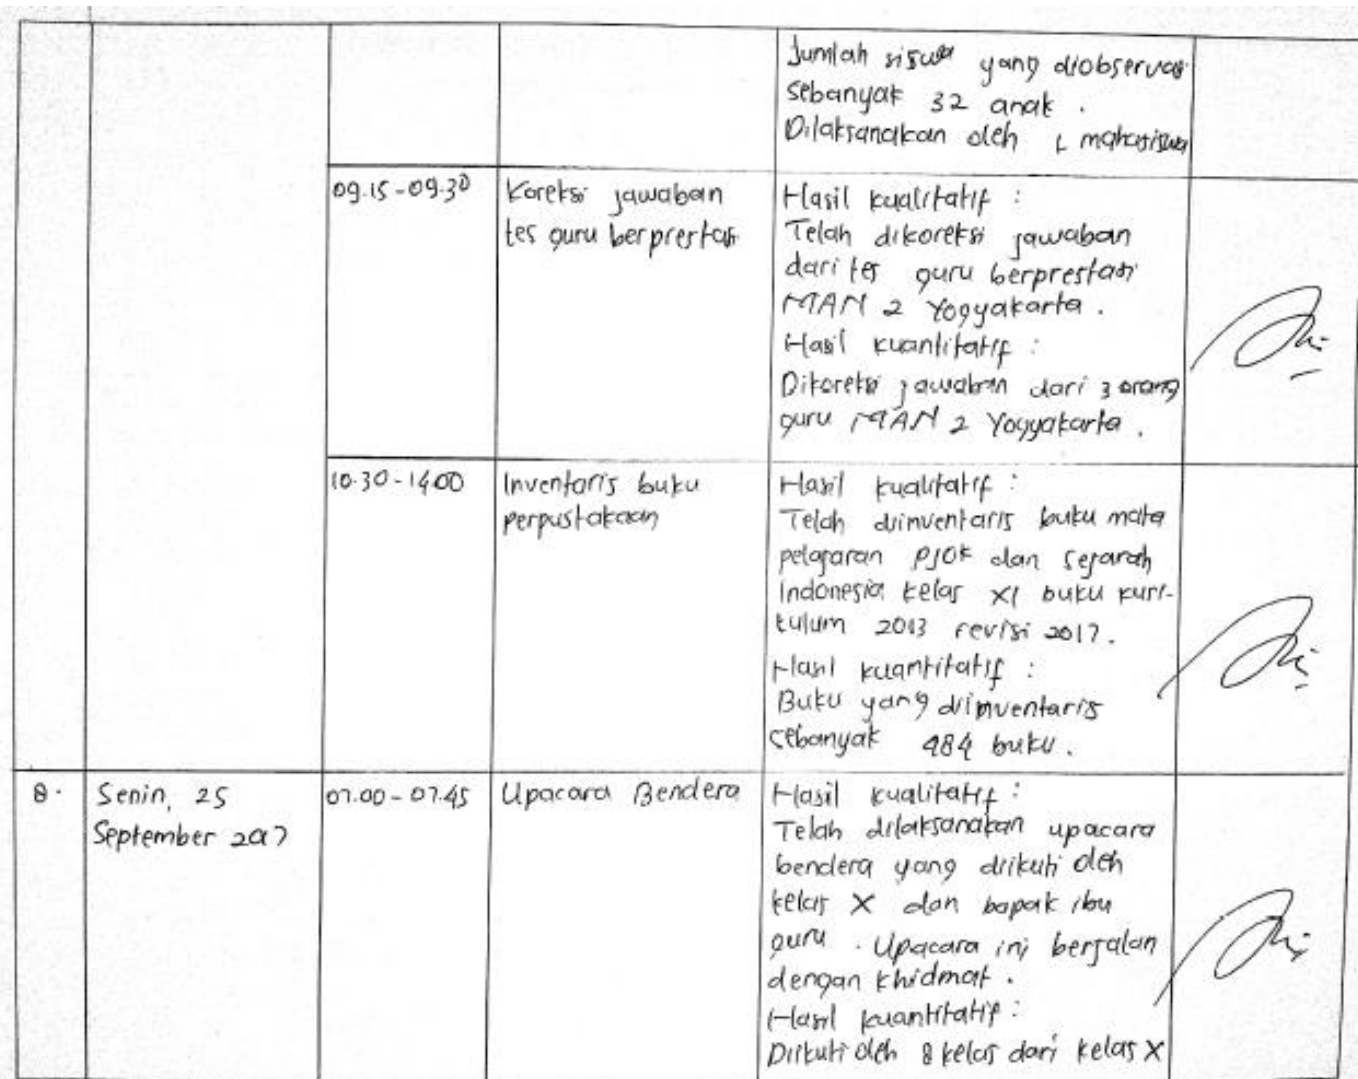 Jumlah siswa yang diobservasi
sebanyak 32 anak .
Dilaksanakan oleh 1 mahasiswa
09.15 - 09.30
Koreksi jawaban
tes guru berprestasi
Hasil kualitatif :
Telah dikoreksi jawaban
dari tes guru berprestasi
MAN 2 Yogyakarta .
Hasil kuantitatif :
Dikoreksi jawaban dari 3 orang
guru MAN 2 Yogyakarta .
10.30 - 14.00
Inventaris buku
perpustakaan
Hasil kualitatif :
Telah diinventaris buku mata
pelajaran PJOK dan sejarah
Indonesia kelas XI buku kuri-
kulum 2013 revisi 2017 .
Hasil kuantitatif :
Buku yang diinventaris
sebanyak 484 buku .
8 .
Senin, 25
September 2017
07.00 - 07.45
Upacara Bendera
Hasil kualitatif :
Telah dilaksanakan upacara
bendera yang diikuti oleh
kelas X dan bapak ibu
guru . Upacara ini berjalan
dengan khidmat .
Hasil kuantitatif :
Diikuti oleh 8 kelas dari kelas X